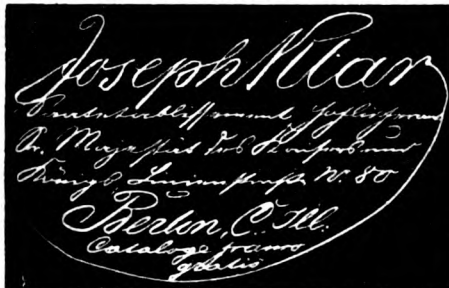 Joseph Klar
Saatetablissement, Hoflieferant
Sr. Majestät des Kaisers und
Königs Linienstraße N. 80
Berlin, C. Ill.
Cataloge franco
gratis